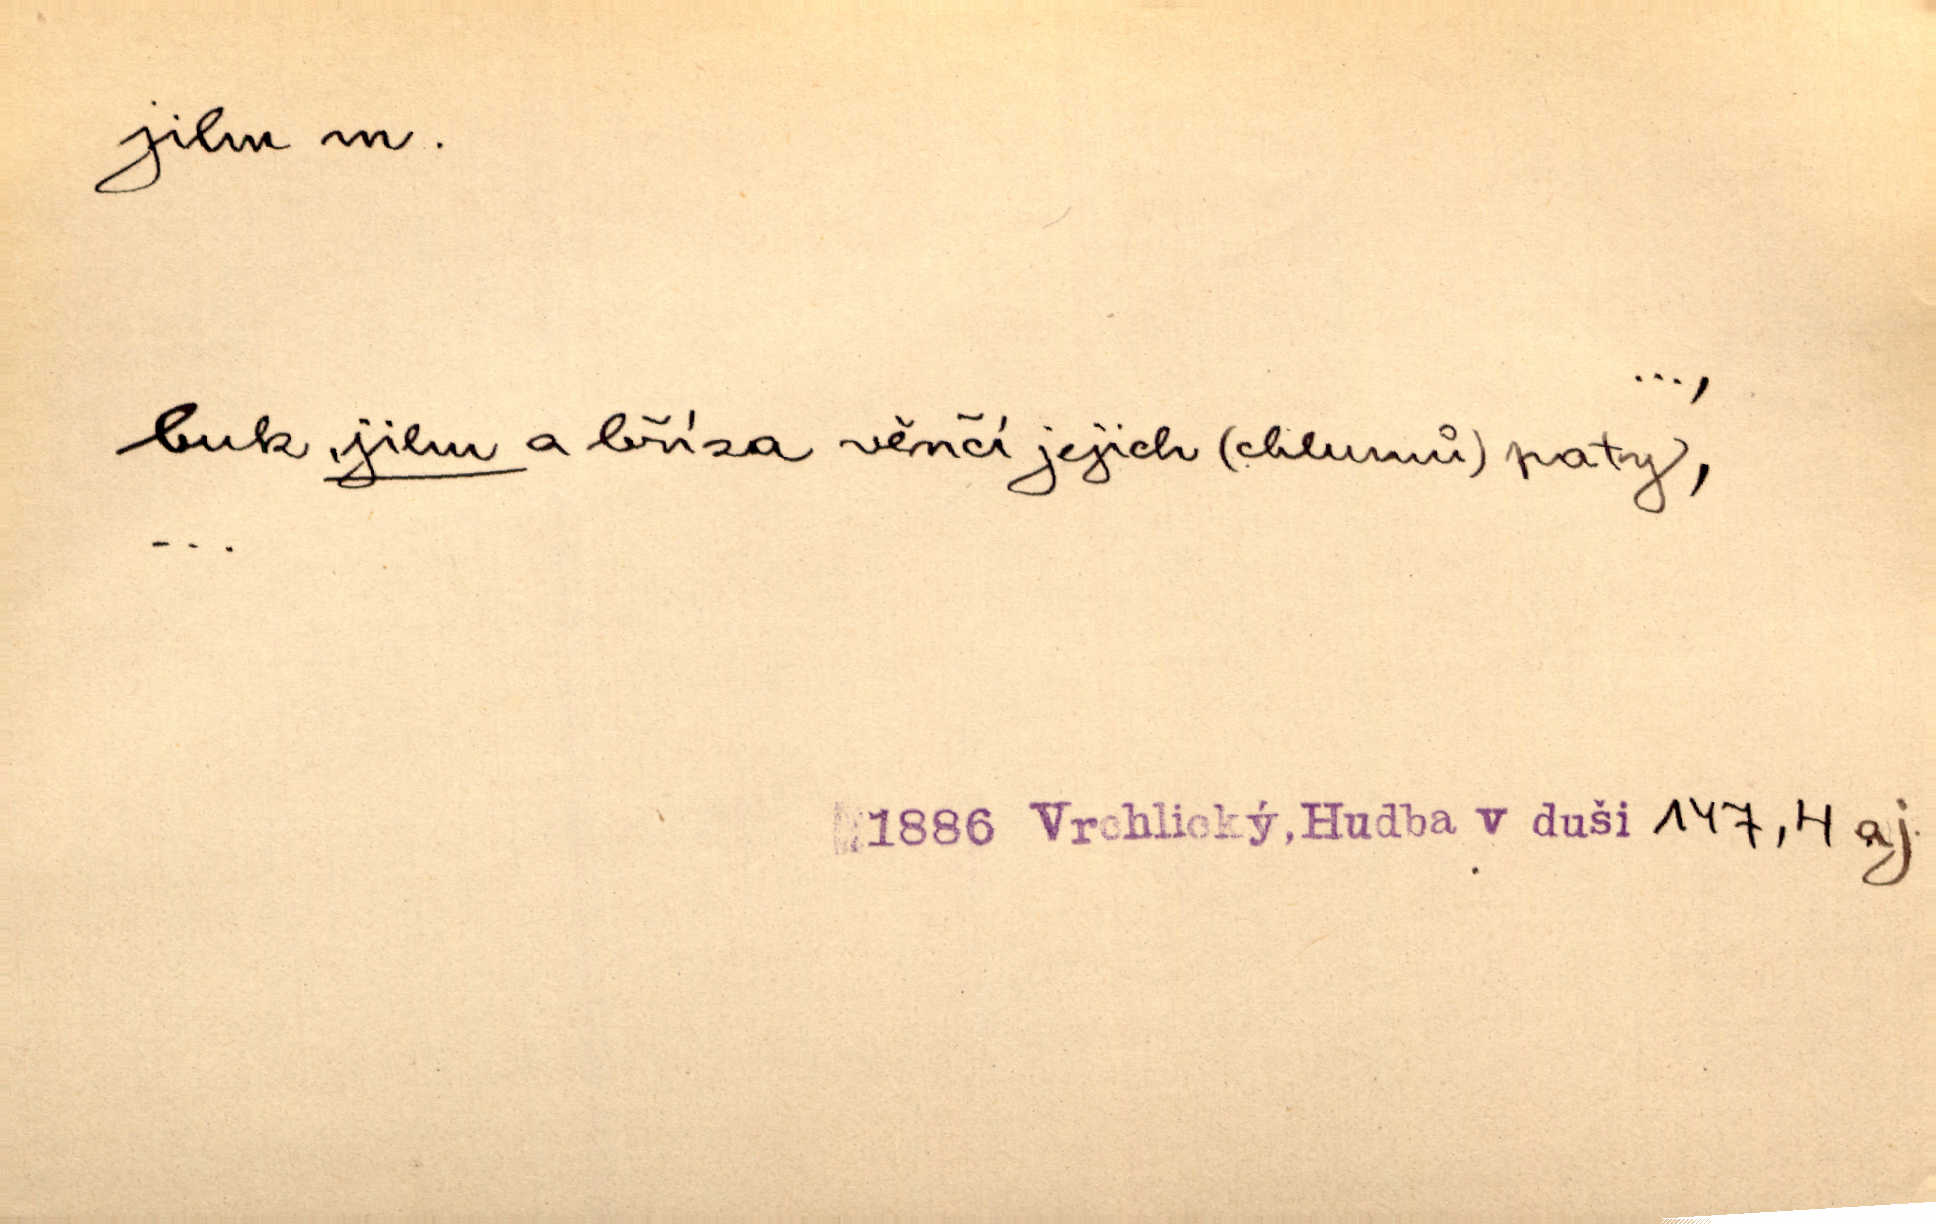 jilm m.
...,
buk, jilm a bříza věnčí jejich (chlumů) paty,
...
1886 Vrchlický, Hudba v duši 147,4 aj.